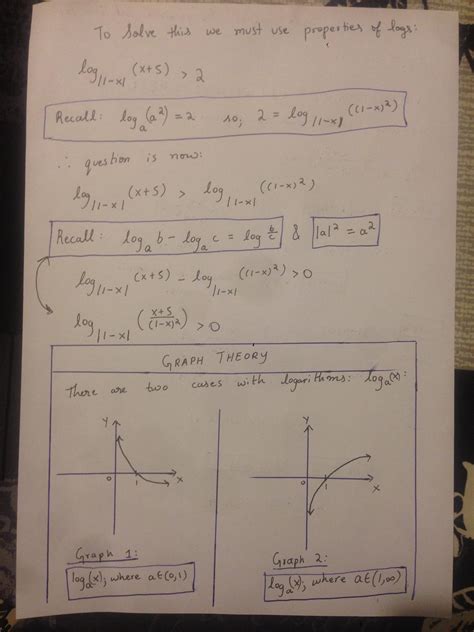 To solve this we must use properties of logs:
log|1-x| (x+5) > 2
Recall: logₐ(a²) = 2 so; 2 = log|1-x| ((1-x)²)
∴ question is now:
log|1-x| (x+5) > log|1-x| ((1-x)²)
Recall: logₐ b - logₐ c = log b/c & |a|² = a²
log|1-x| (x+5) - log|1-x| ((1-x)²) > 0
log|1-x| (x+5/(1-x)²) > 0
GRAPH THEORY
There are two cases with logarithms: logₐ(x):
y
0 1 x
Graph 1:
logₐ(x), where a∈(0,1)
y
0 1 x
Graph 2:
logₐ(x), where a∈(1,∞)